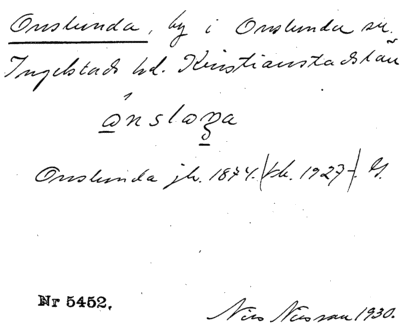 Onslunda, by i Onslunda sn.
Ingelstads hd. Kristianstads län
ánslo̱ṉa
Onslunda jb. 1874. | kk. 1927-. G.
Nr 5452. Nils Nilsson 1930.